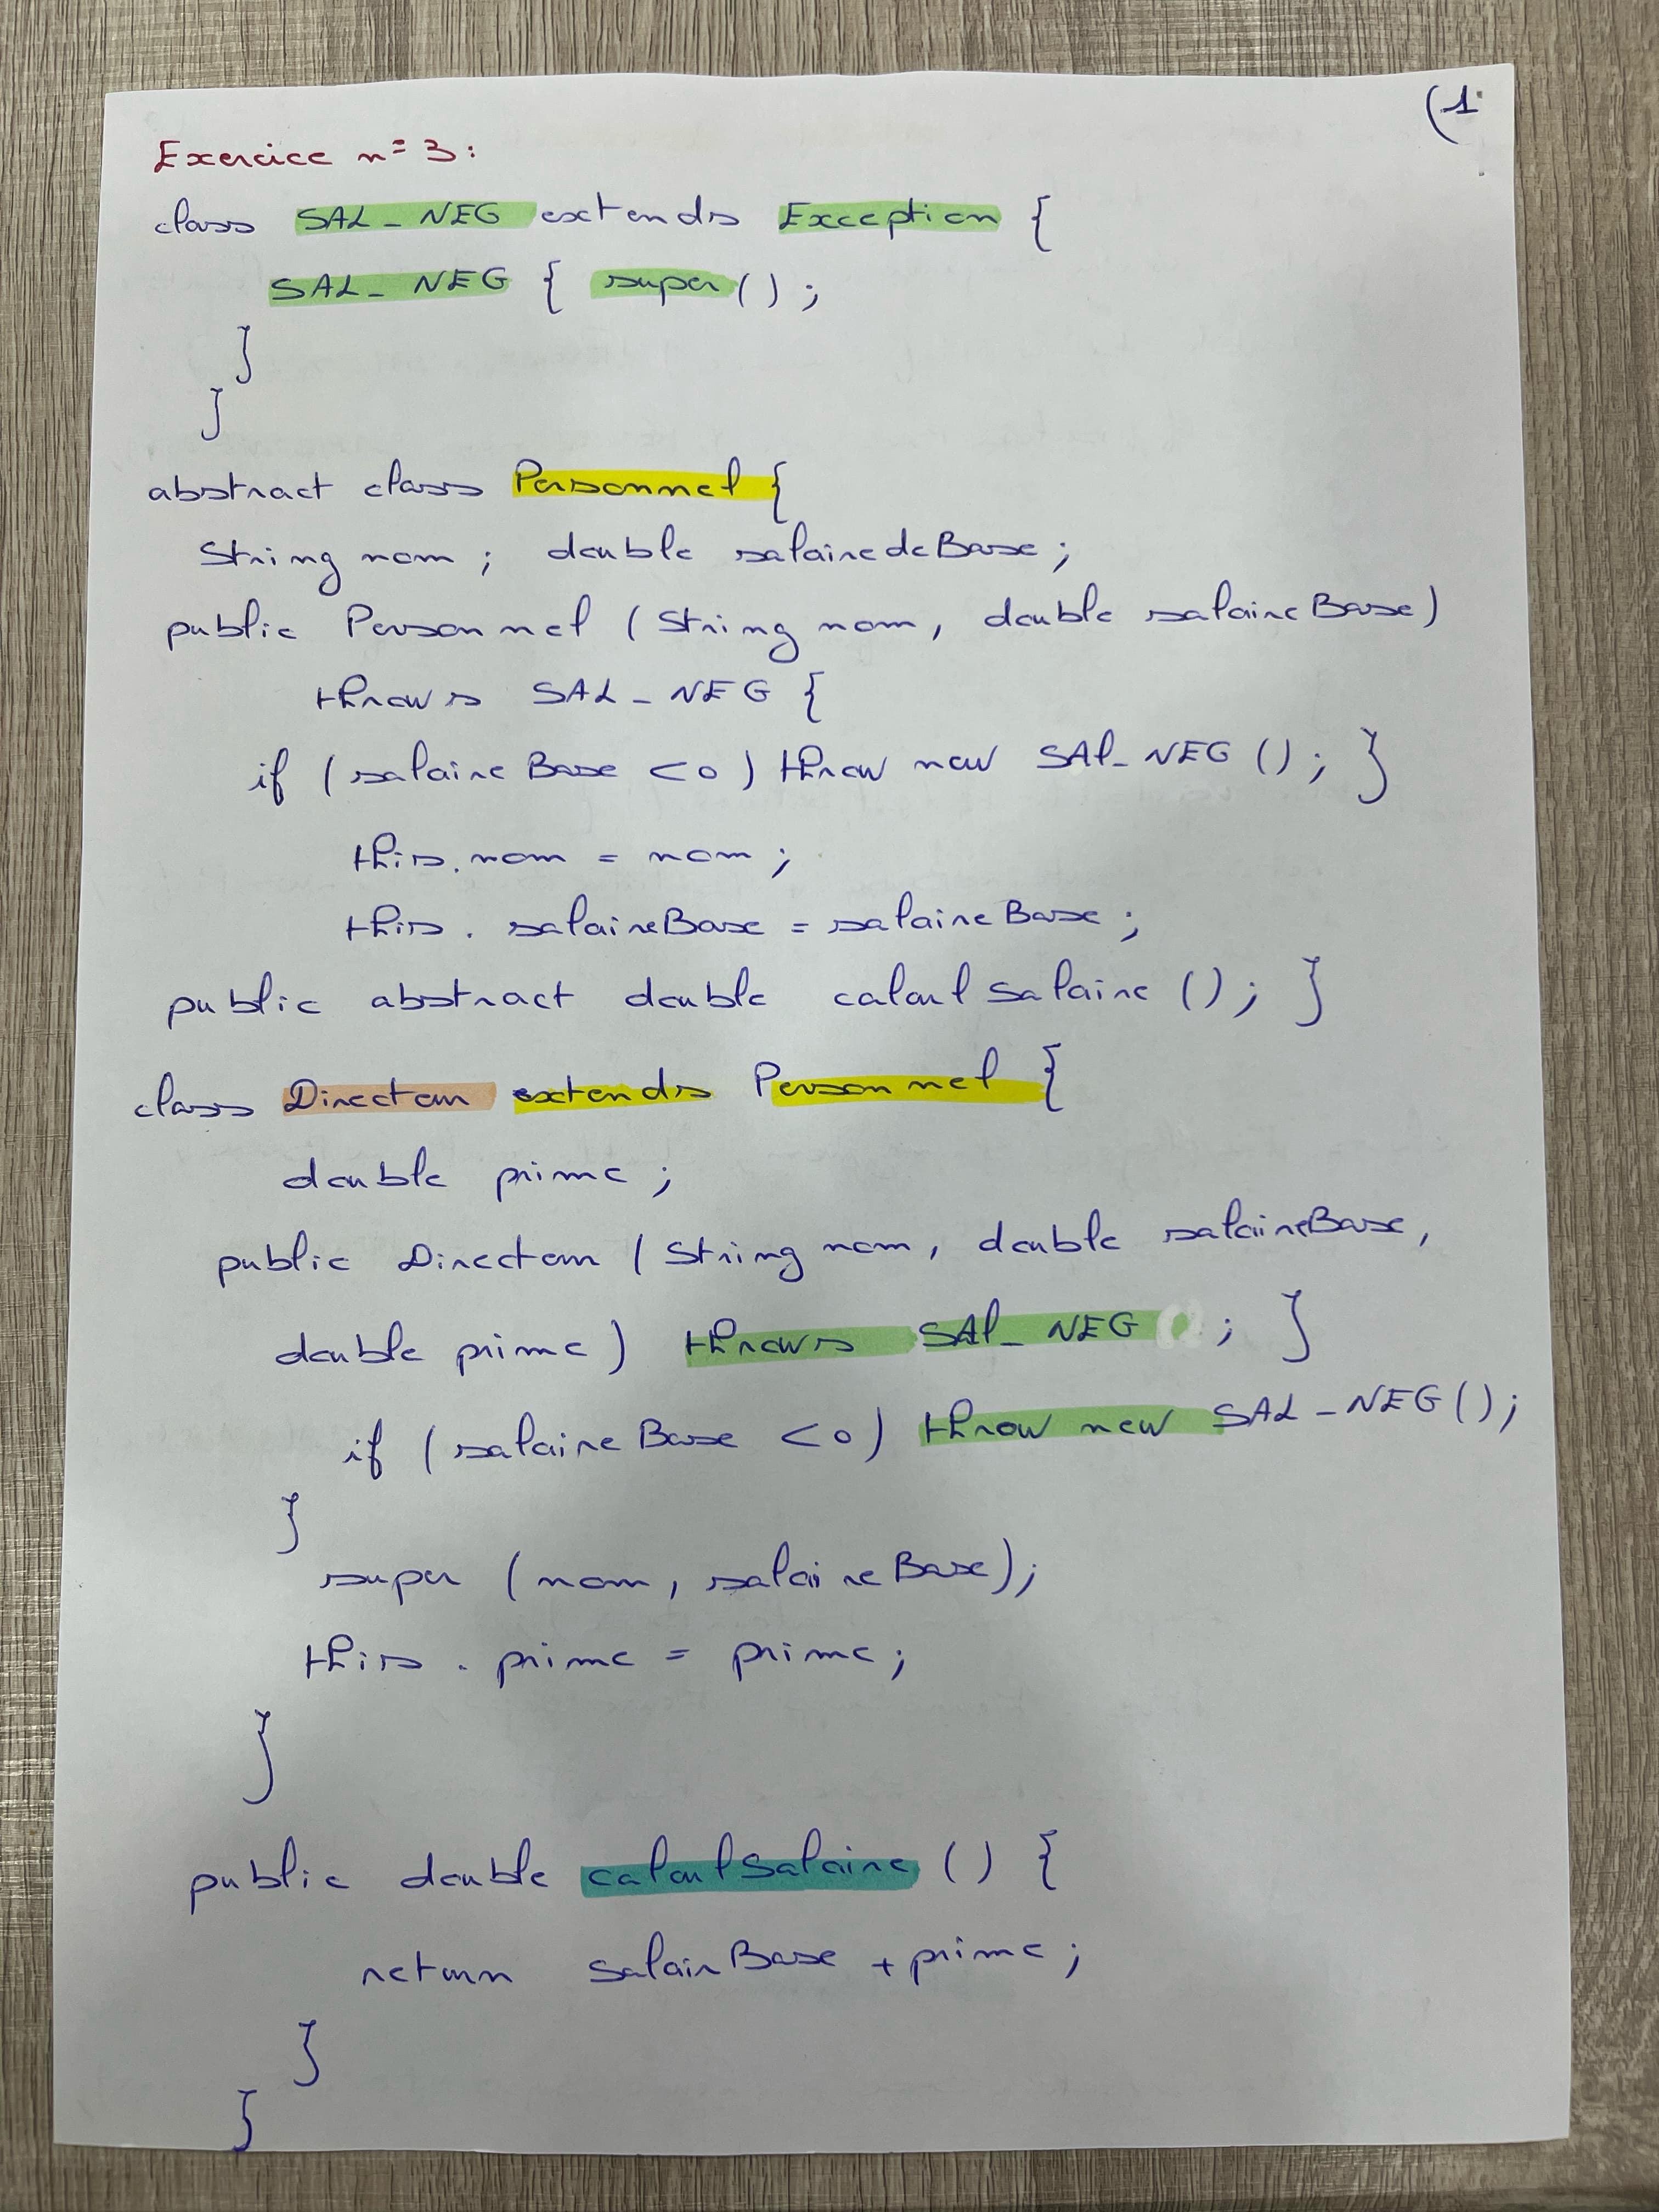 (1
Exercice n° 3:
class SAL_NEG extends Exception {
SAL_NEG { super();
}
}
abstract class Personnel {
String nom ; double salairedeBase ;
public Personnel (String nom, double salaireBase)
throws SAL_NEG {
if (salaireBase <0) throw new SAL_NEG (); }
this.nom = nom ;
this.salaireBase = salaireBase ;
public abstract double calculSalaire (); }
class Directeur extends Personnel {
double prime ;
public Directeur (String nom, double salaireBase,
double prime) throws SAL_NEG ; }
if (salaireBase <0) throw new SAL_NEG();
}
super (nom, salaireBase);
this.prime = prime;
}
public double calculSalaire () {
return salairBase + prime ;
}
}